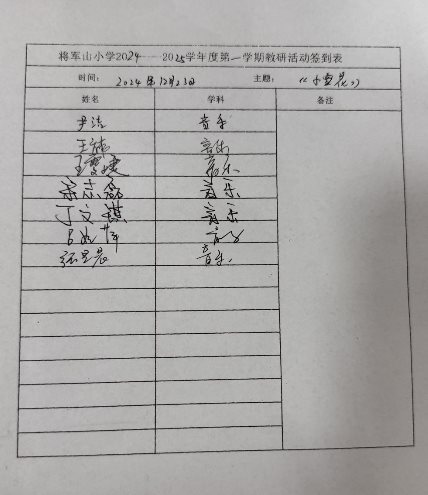 将军山小学2024——2025学年度第一学期教研活动签到表
时间： 2024年12月23日 主题： 《小雪花》
姓名 学科 备注
尹洁 音乐
王 音乐
王雪婕 音乐
磊 音乐
丁文琪 音乐
吕 音乐
张昱晨 音乐